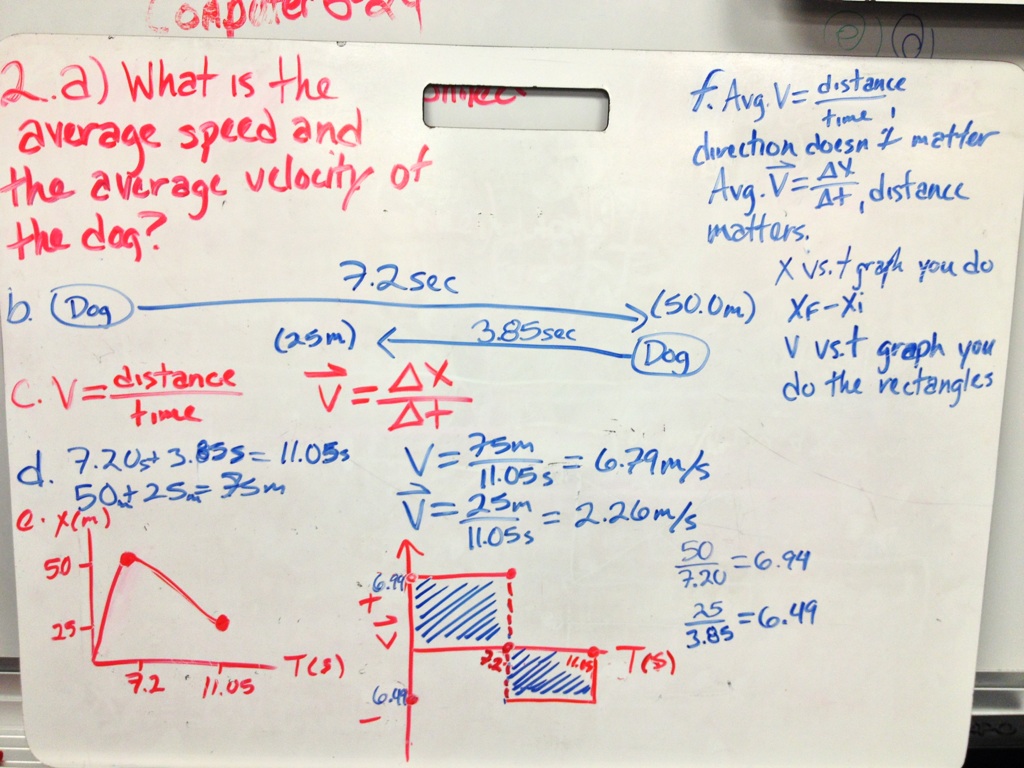 Computer 8-24
2.a) What is the
average speed and
the average velocity of
the dog?
f. Avg. V = distance
time,
direction doesn't matter
Avg. V = ΔX
Δt, distance
matters.
X vs. t graph you do
XF - Xi
V vs. t graph you
do the rectangles
7.2 sec
b. Dog (50.0m)
(25m) 3.85sec Dog
c. V = distance
time
V = ΔX
Δt
d. 7.20s + 3.85s = 11.05s
50m + 25m = 75m
V = 75m
11.05s = 6.79 m/s
V = 25m
11.05s = 2.26 m/s
e. X(m)
50
25
7.2 11.05 T(s)
6.94
+
V
7.2 11.05 T(s)
6.49
-
50
7.20 = 6.94
25
3.85 = 6.49